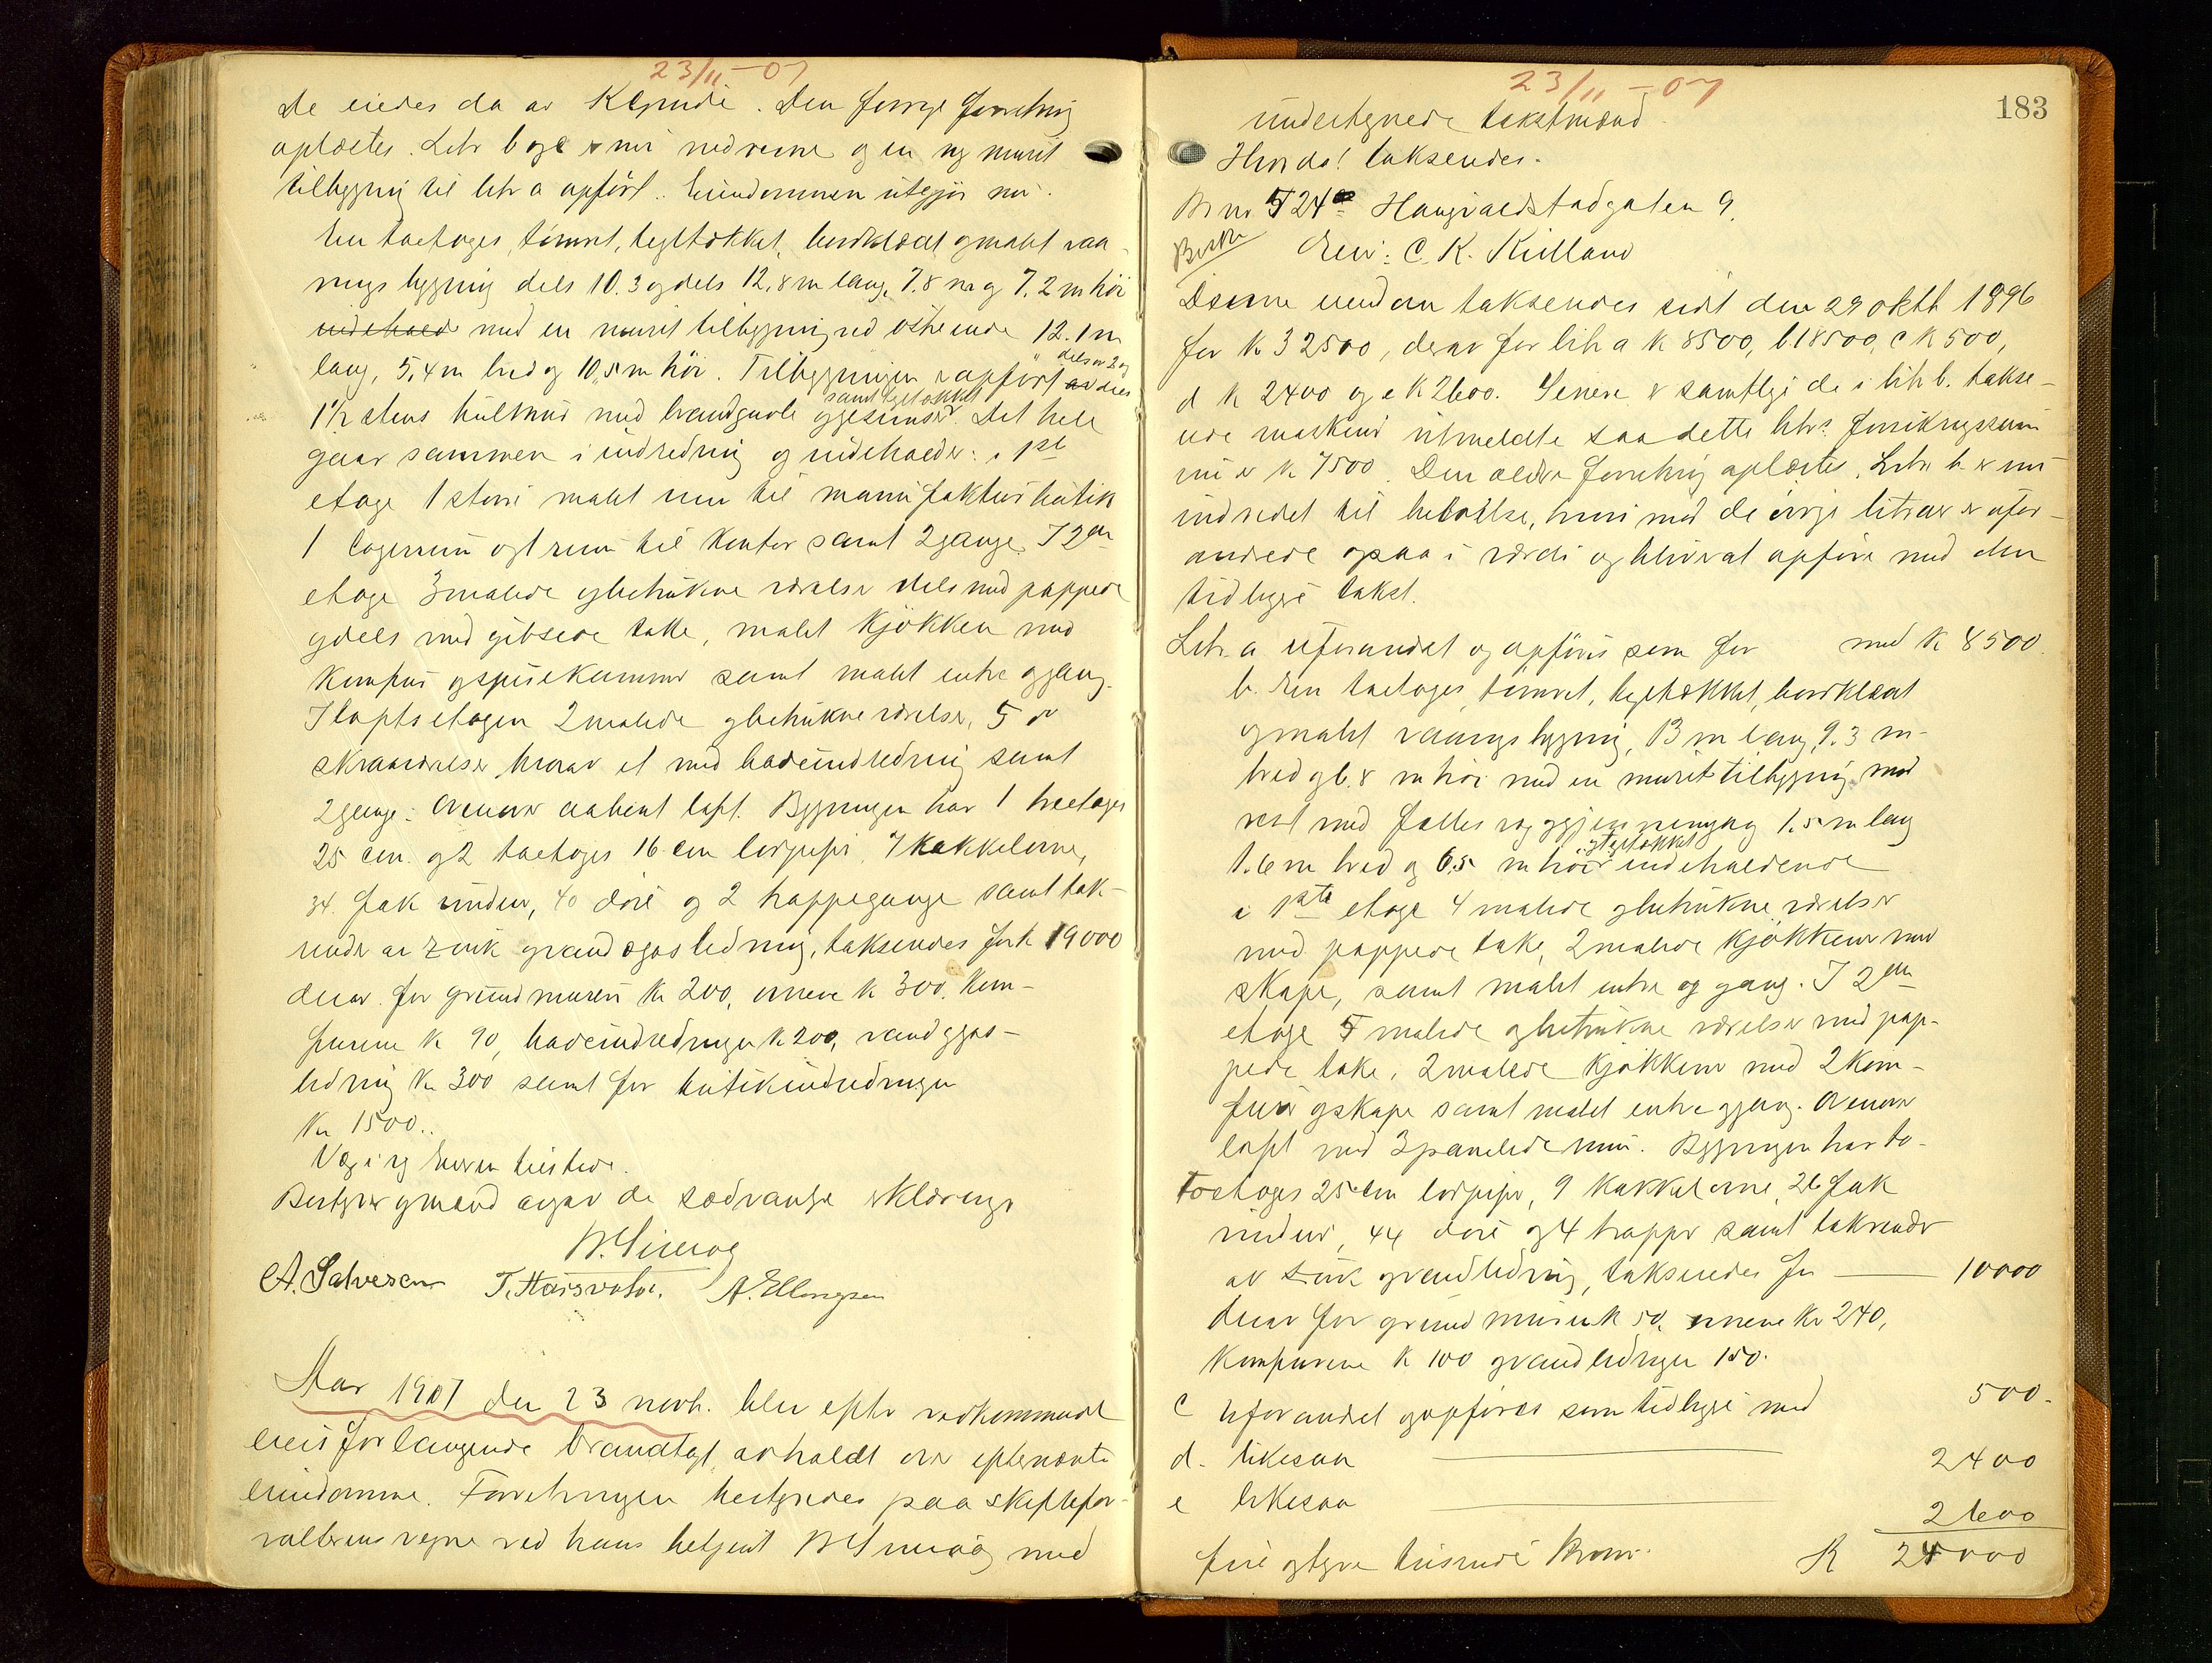 23/11-07
de eiedes da av . Den forrige forretning
oplæstes. Litr b og c er nu nedrevne og en ny muret
tilbygning til litr a opført. Eiendommen utgjør nu:
En toetages, tømret, tegltækket, bordklædt og malt vaa-
nings bygning dels 10.3 og dels 12,8 m lang, 7.8 m og 7,2 m høi
indehold med en muret tilbygning ved østre ende 12.1 m
lang, 5,4 m bred og 10,5 m høi. Tilbygningen er opført av dels
dels av 2 og
1½ stens hulmur med brandgavle og gesimser. Det hele
samt tegltækket
gaar sammen i indredning og indeholder: i 1ste
etage 1 større malet rum til manufakturbutik
1 lagerrum og 1 rum til kontor samt 2 gange. I 2den
etage 3 malede og betrukne værelser dels med pappede
og dels med gibsede take, malet kjøkken med
komfur og spisekammer samt malet entre og gang.
I loftsetagen 2 malede og betrukne værelser, 5
skraaværelser, hvorav et med badeindredning samt
2 gange: Ovenover aabent loft. Bygningen har 1 treetages
25 cm. og 2 toetages 16 cm lorpiper, 7 kakkelovne,
34 fak vinduer, 40 døre og 2 trappegange samt tak-
render av zink og vand og gasledning, taksendes for k 19000
derav for grundmuren kr 200, ovnene k 300, kom-
furene k 90, badeindredningen k 200, vand og gas-
ledning kr 300 samt for butikindredningen
Kr 1500..
Væg i og Eieren tilstede.
Bestyrer og mænd avgav de sædvanlige erklæringer
A. Salvesen T. A. Ellingsen

Aar 1907 den 23 novb. blev efter vedkommende
eiers forlangende brandtakst avholdt over efternævnte
eiendomme. Forretningen bestyredes paa skiftefor-
valterens vegne ved hans betjent med
23/11-07
183
undertegnede takstmænd.
Hvorda! taksendes.
Br nr 524a Haugvaldstadgaten 9.
Eier: C. K. Kielland
Denne eiendom taksendes sidst den 29 oktb 1896
for k. 32500, derav for litr a k 8500, b 18500, c k 500,
d k 2400 og e k 2600. Senere er samtlige de i litr b. takse-
rede maskiner utmeldte saa dette litrs forsikringssum
nu er k 7500. Den ældre forretning oplæstes. Litr b. er nu
indredet til beboelse, mens med de øvrige litraer er ufor-
andrede ogsaa i værdi og blir at opføre med den
tidligere takst.
Litr. a uforandret og opføres som før med k 8500.
b. En toetages, tømret, tegltækket, bordklædt
og malet vaanings bygning, 13 m lang, 9.3 m
bred og 6.8 m høi med en muret tilbygning mod
vest med fælles væg og gjennemgang 1.5 m lang
1.6 m bred og 6.5 m høi indeholdende
og tegltækket
i 1ste etage 4 malede og betrukne værelser
med pappede take, 2 malede kjøkkener med
skape, samt malet entre og gang. I 2den
etage 5 malede og betrukne værelser med pap-
pede take, 2 malede kjøkkener med 2 kom-
furer og skape samt malet entre og gang. Ovenover
loft med 3 panelede rum. Bygningen har to
toetages 25 cm lorpiper, 9 kakkelovne, 26 fak
vinduer, 44 døre og 4 trapper samt takrender
av zink og vandledning, taksendes for 10000
derav for grundmuren k 50, ovnene kr 240,
komfurene k 100 og vandledningen 150.
c uforandret og opføres som tidligere med 500.
d. likesaa 2400
e likesaa 2600
fire og tyve tusinde kroner K 24000